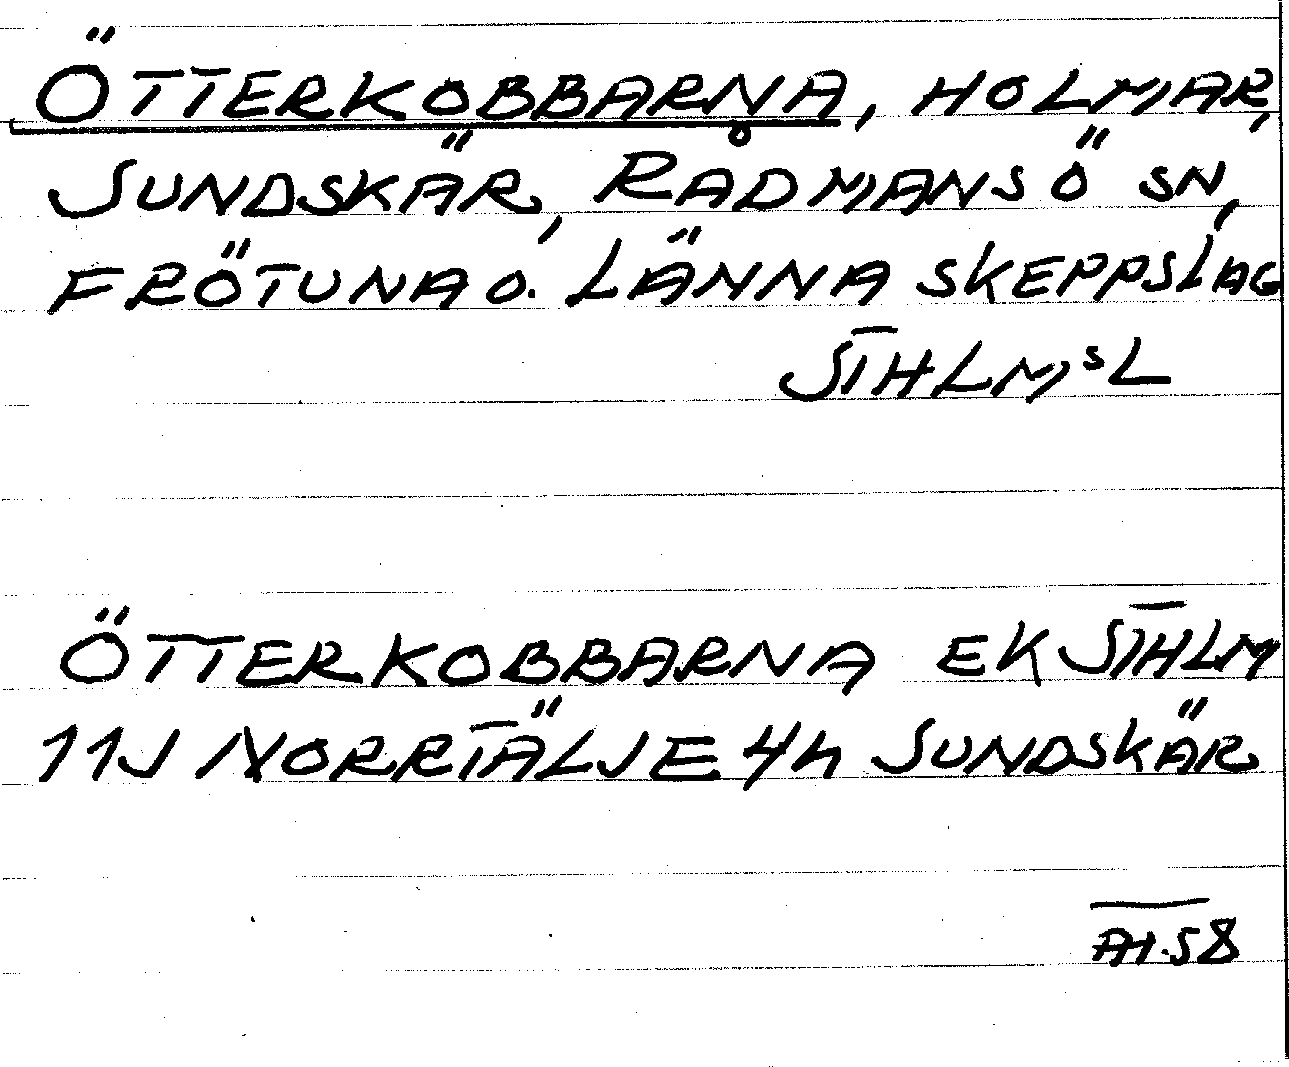 ÖTTERKOBBARNA, HOLMAR,
SUNDSKÄR, RÅDMANSÖ SN,
FRÖTUNA O. LÄNNA SKEPPSLAG
STHLMSL
ÖTTERKOBBARNA EK STHLM
11J NORRTÄLJE 4h SUNDSKÄR
AH.58